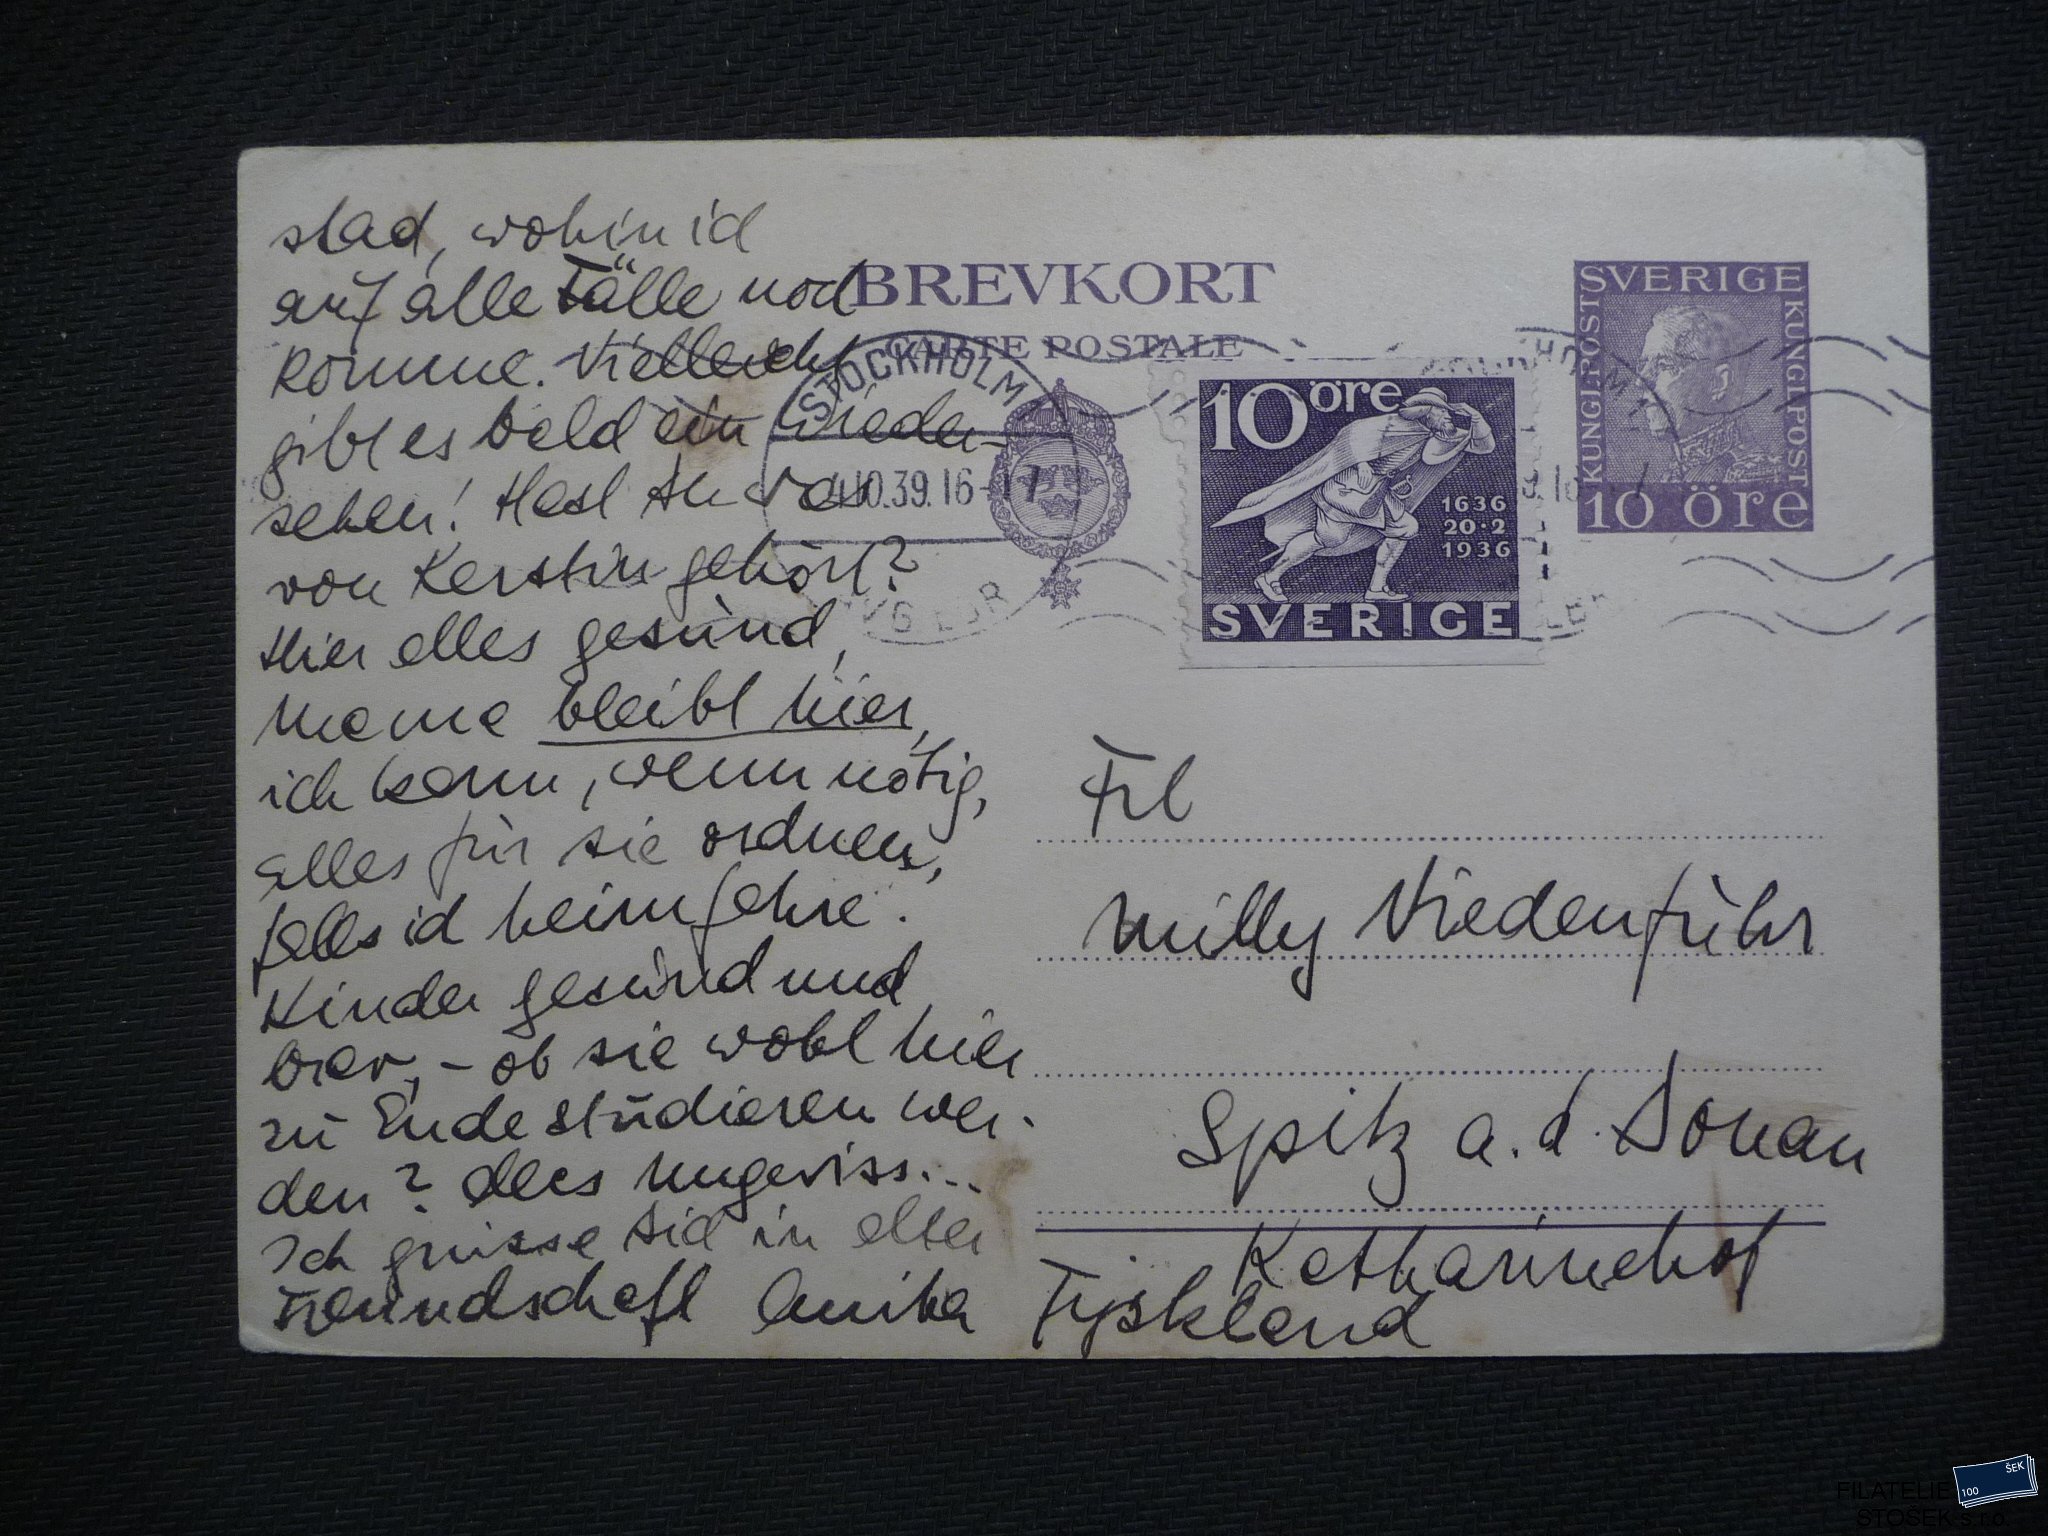 stad, wohin ich
auf alle Fälle noch
komme. Vielleicht
gibt es bald ein Wieder-
sehen! Hast Du was
von Kerstin gehört?
Hier alles gesund,
Mama bleibt hier,
ich kann, wenn nötig,
alles für sie ordnen,
falls ich heimfahre.
Kinder gesund und
brav, - ob sie wohl hier
zu Ende studieren wer-
den? Alles ungewiss...
Ich grüsse Dich in alter
Freundschaft Annika
BREVKORT
CARTE POSTALE
STOCKHOLM
10.39.16-17
10 öre
1636
20·2
1936
SVERIGE
SVERIGE
KUNGL. POST
KUNGL. POST
10 öre
Frl
Milly Niedenführ
Spitz a. d. Donau
Katharinenhof
Tyskland
FILATELIE
STOSEK s.r.o.
100
ŠEK